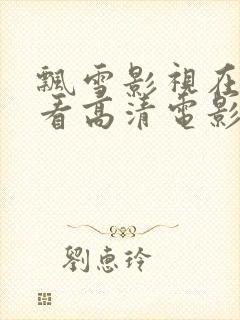 飄雪影視在
看高清電影
劉惠玲